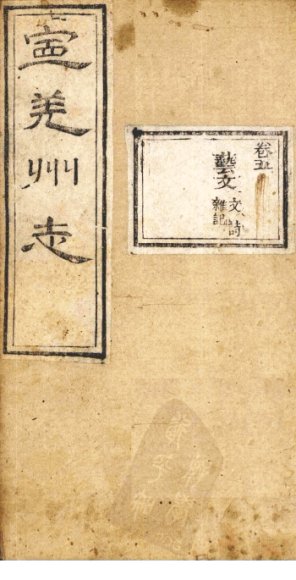 寍羌州志
卷五
藝文
文詩
雜記